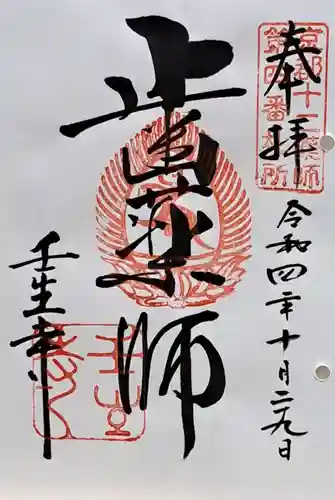 奉拝
京都十二薬師
第四番札所
令和四年十月二九日
歯薬師
壬生寺